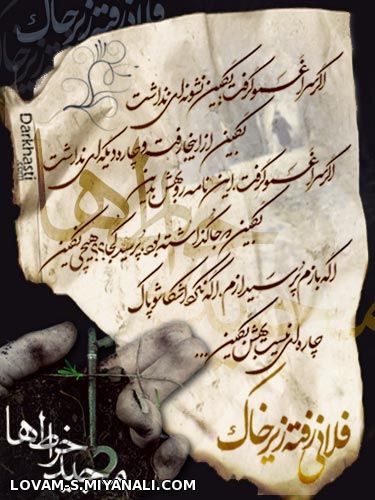 فلانی رفته زیر خاک
اگه سراغمو گرفت بگین نشونه‌ای نداشت
بگین از اینجا رفت و چاره دیگه‌ای نداشت
اگه سراغمو گرفت، این نامه رو بهش بدین
بگین جا گذاشته بود، پرسید کجا؟؟ هیچی نگین
اگه بازم پرسید ازم، اگه نکرد اشکاشو پاک
چاره‌ای نیست بهش بگین...
فلانی رفته زیر خاک
مجید خراطها
Darkhasti.com
LOVAM-S.MIYANALI.COM